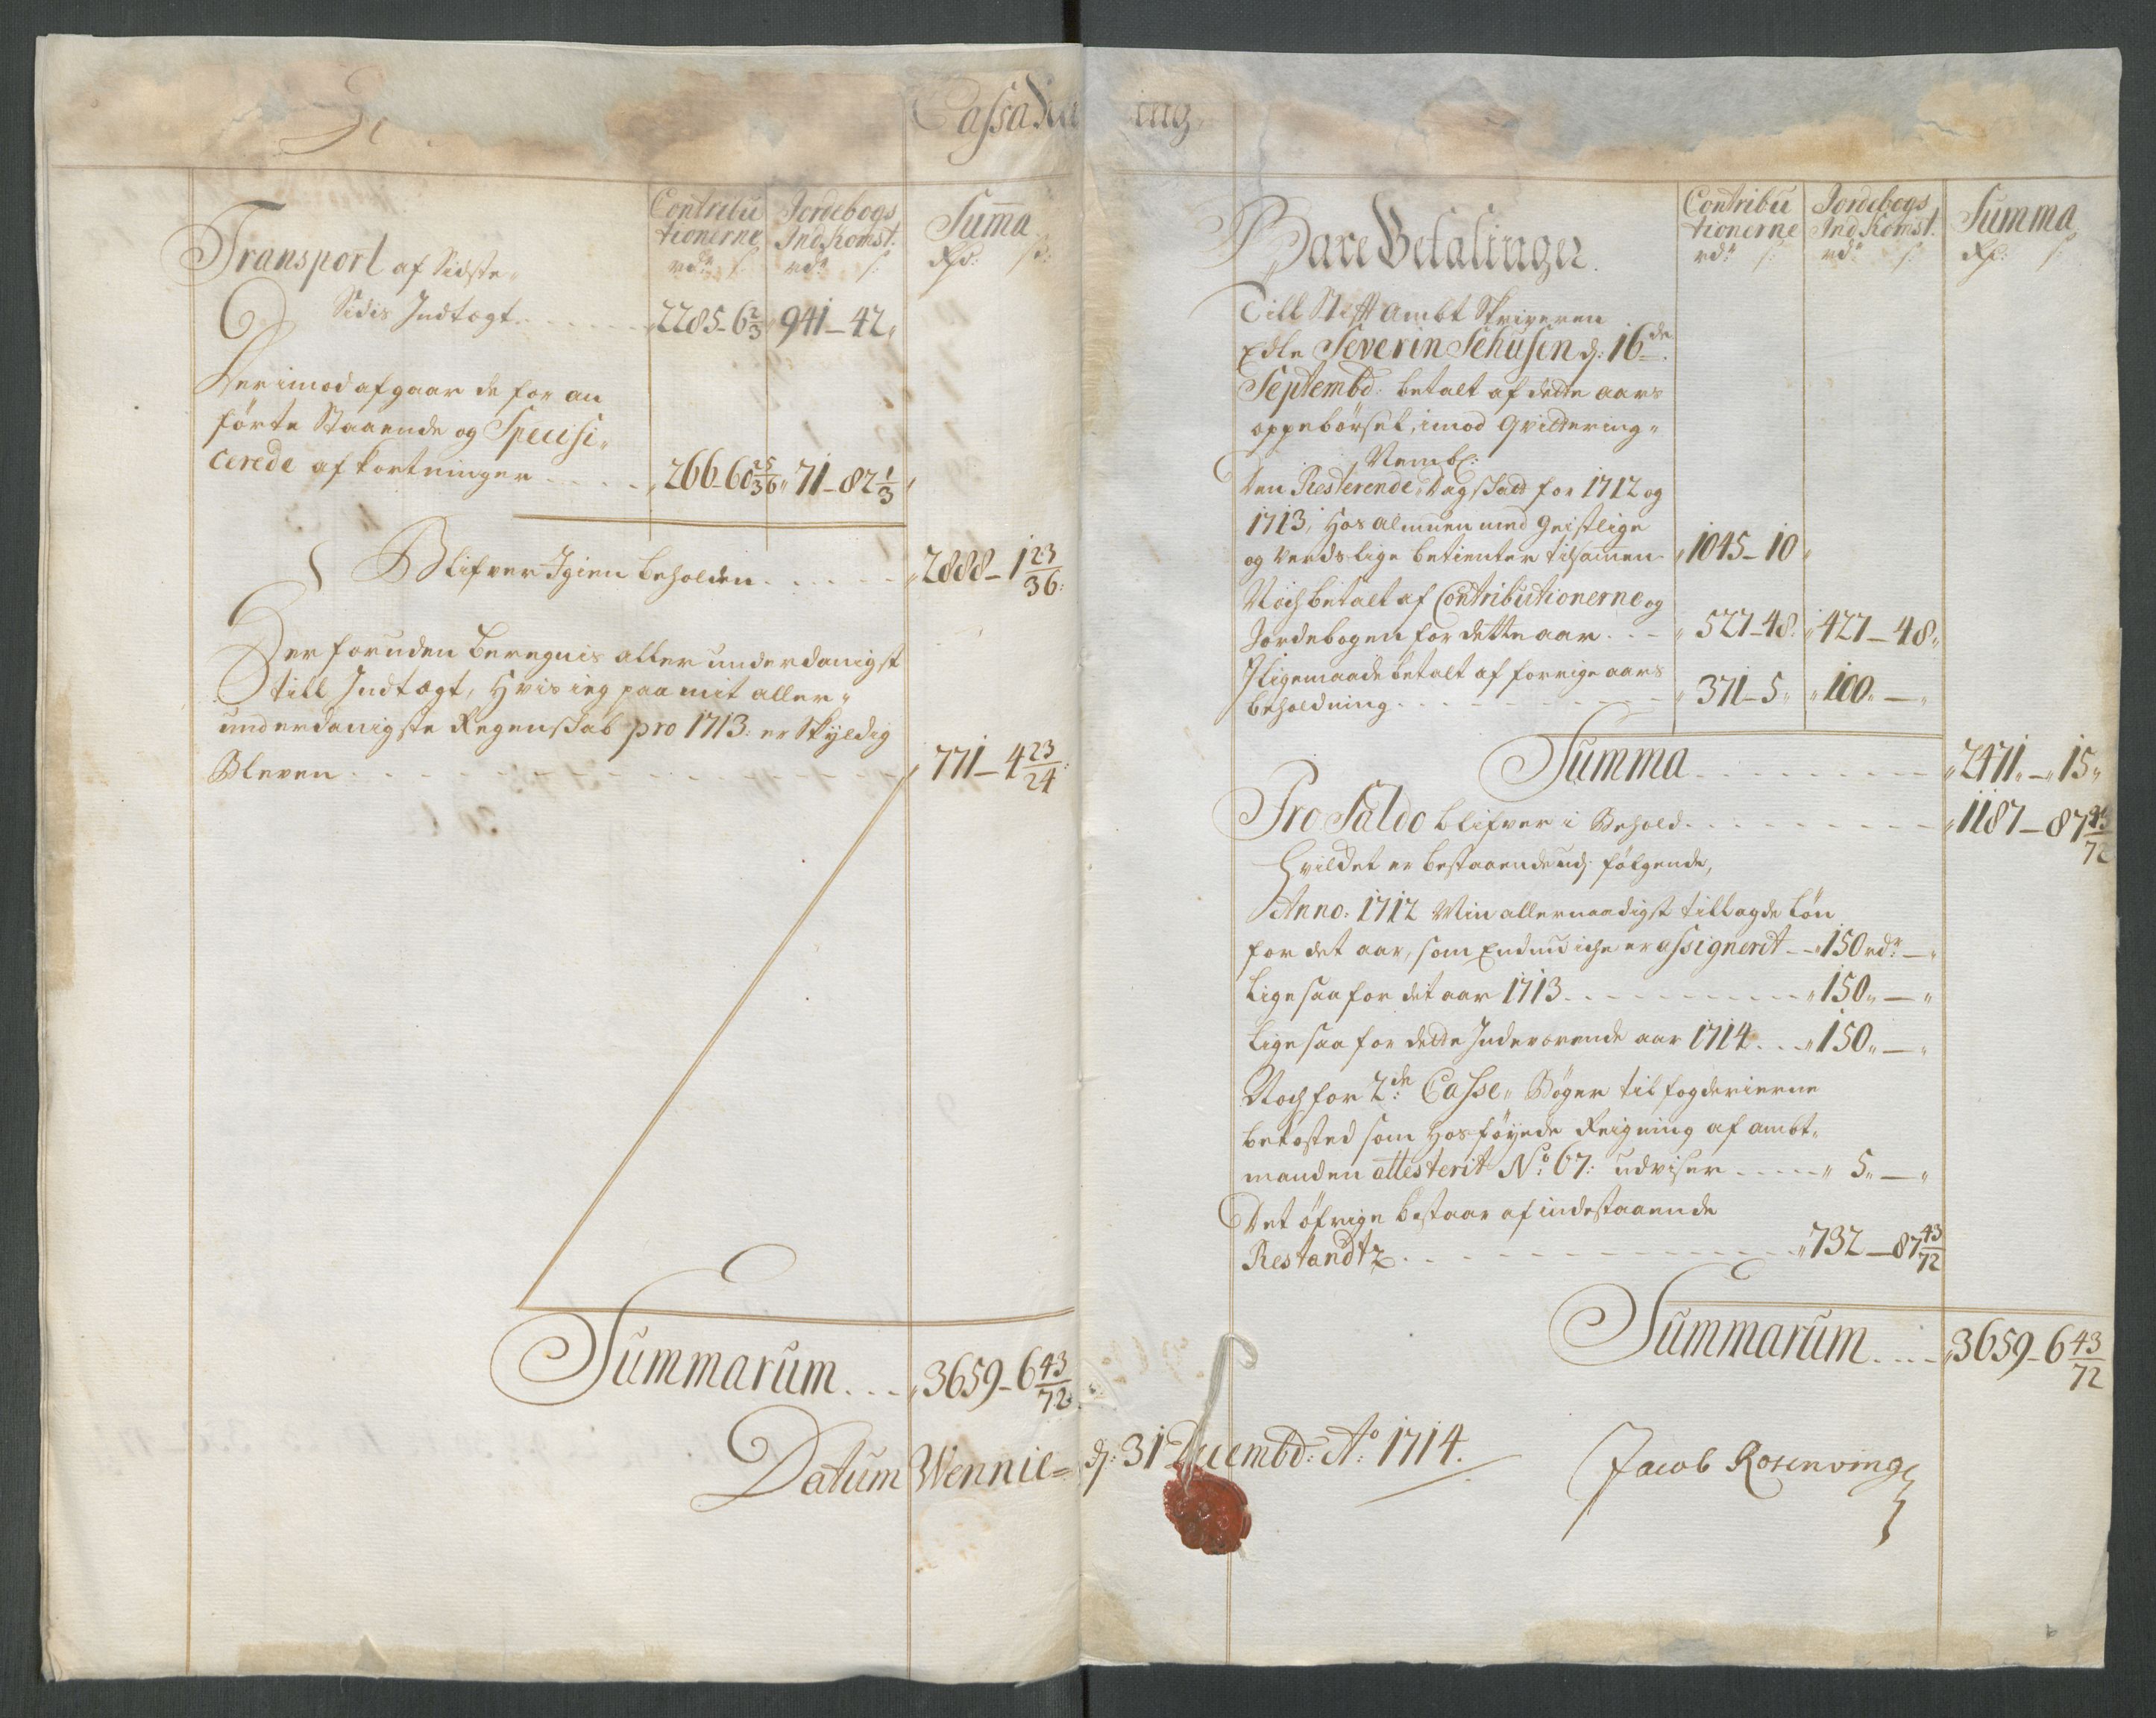 Cassa
ing
Contribu Jordebogs Summa
tionerne Ind komst. Rd: s:
rdr s: rdr s:
Transport af Sidste
Sidis Indtægt 2285-6 2/3 941-42
Herimod afgaar de for an
førte Staaende og Specifi
cerede afkortninger 266-60 25/36 71-82 1/3
Blifver Igien beholden 2888-1 23/36
Der foruden beregnis aller underdanigst
till Indtægt, hvis ieg paa mit aller
underdanigste Regenskab pro 1713: er Skyldig
Bleven 771-4 23/24
Summarum 3659-6 43/72
Datum Wennie= d: 31 Decembd: Ao 1714.
Contribu Jordebogs Summa
tionerne Ind komst. Rd: s:
rdr s: rdr s:
Bare Betalinger.
Till Stifft Ambt Skriveren
Edle Severin Sehusen d: 16de
Septembd: betalt af dette aars
oppebørsel, imod Qvittering
Neml:
den Resterende Dagskatt for 1712 og
1713, hos almuen med Geistlige
og verdslige betienter tilsamen 1045-10
Noch betalt af Contributionerne og
Jordebogen for dette aar 527-48. 427-48
Iligemaade betalt af forrige aars
beholdning 371-5 100 -
Summa 2471-15
Pro Saldo blifver i Behold 1187-87 43/72
Hvilket er bestaaende udj følgende,
Anno: 1712 Min allernaadigst tillagde Løn
for det aar, som Endnu iche er assignerit 150 rdr -
Ligesaa for det aar 1713 150 -
Ligesaa for dette Indeværende aar 1714 150 -
Noch for 2de Casse Bøger til fogderierne
bekosted som hosføyede Reigning af ambt
manden attesterit No 67: udviser 5 -
Det øfrige bestaar af indestaaende
Restandtz 732-87 43/72
Summarum 3659-6 43/72
Jacob Rosenvinge